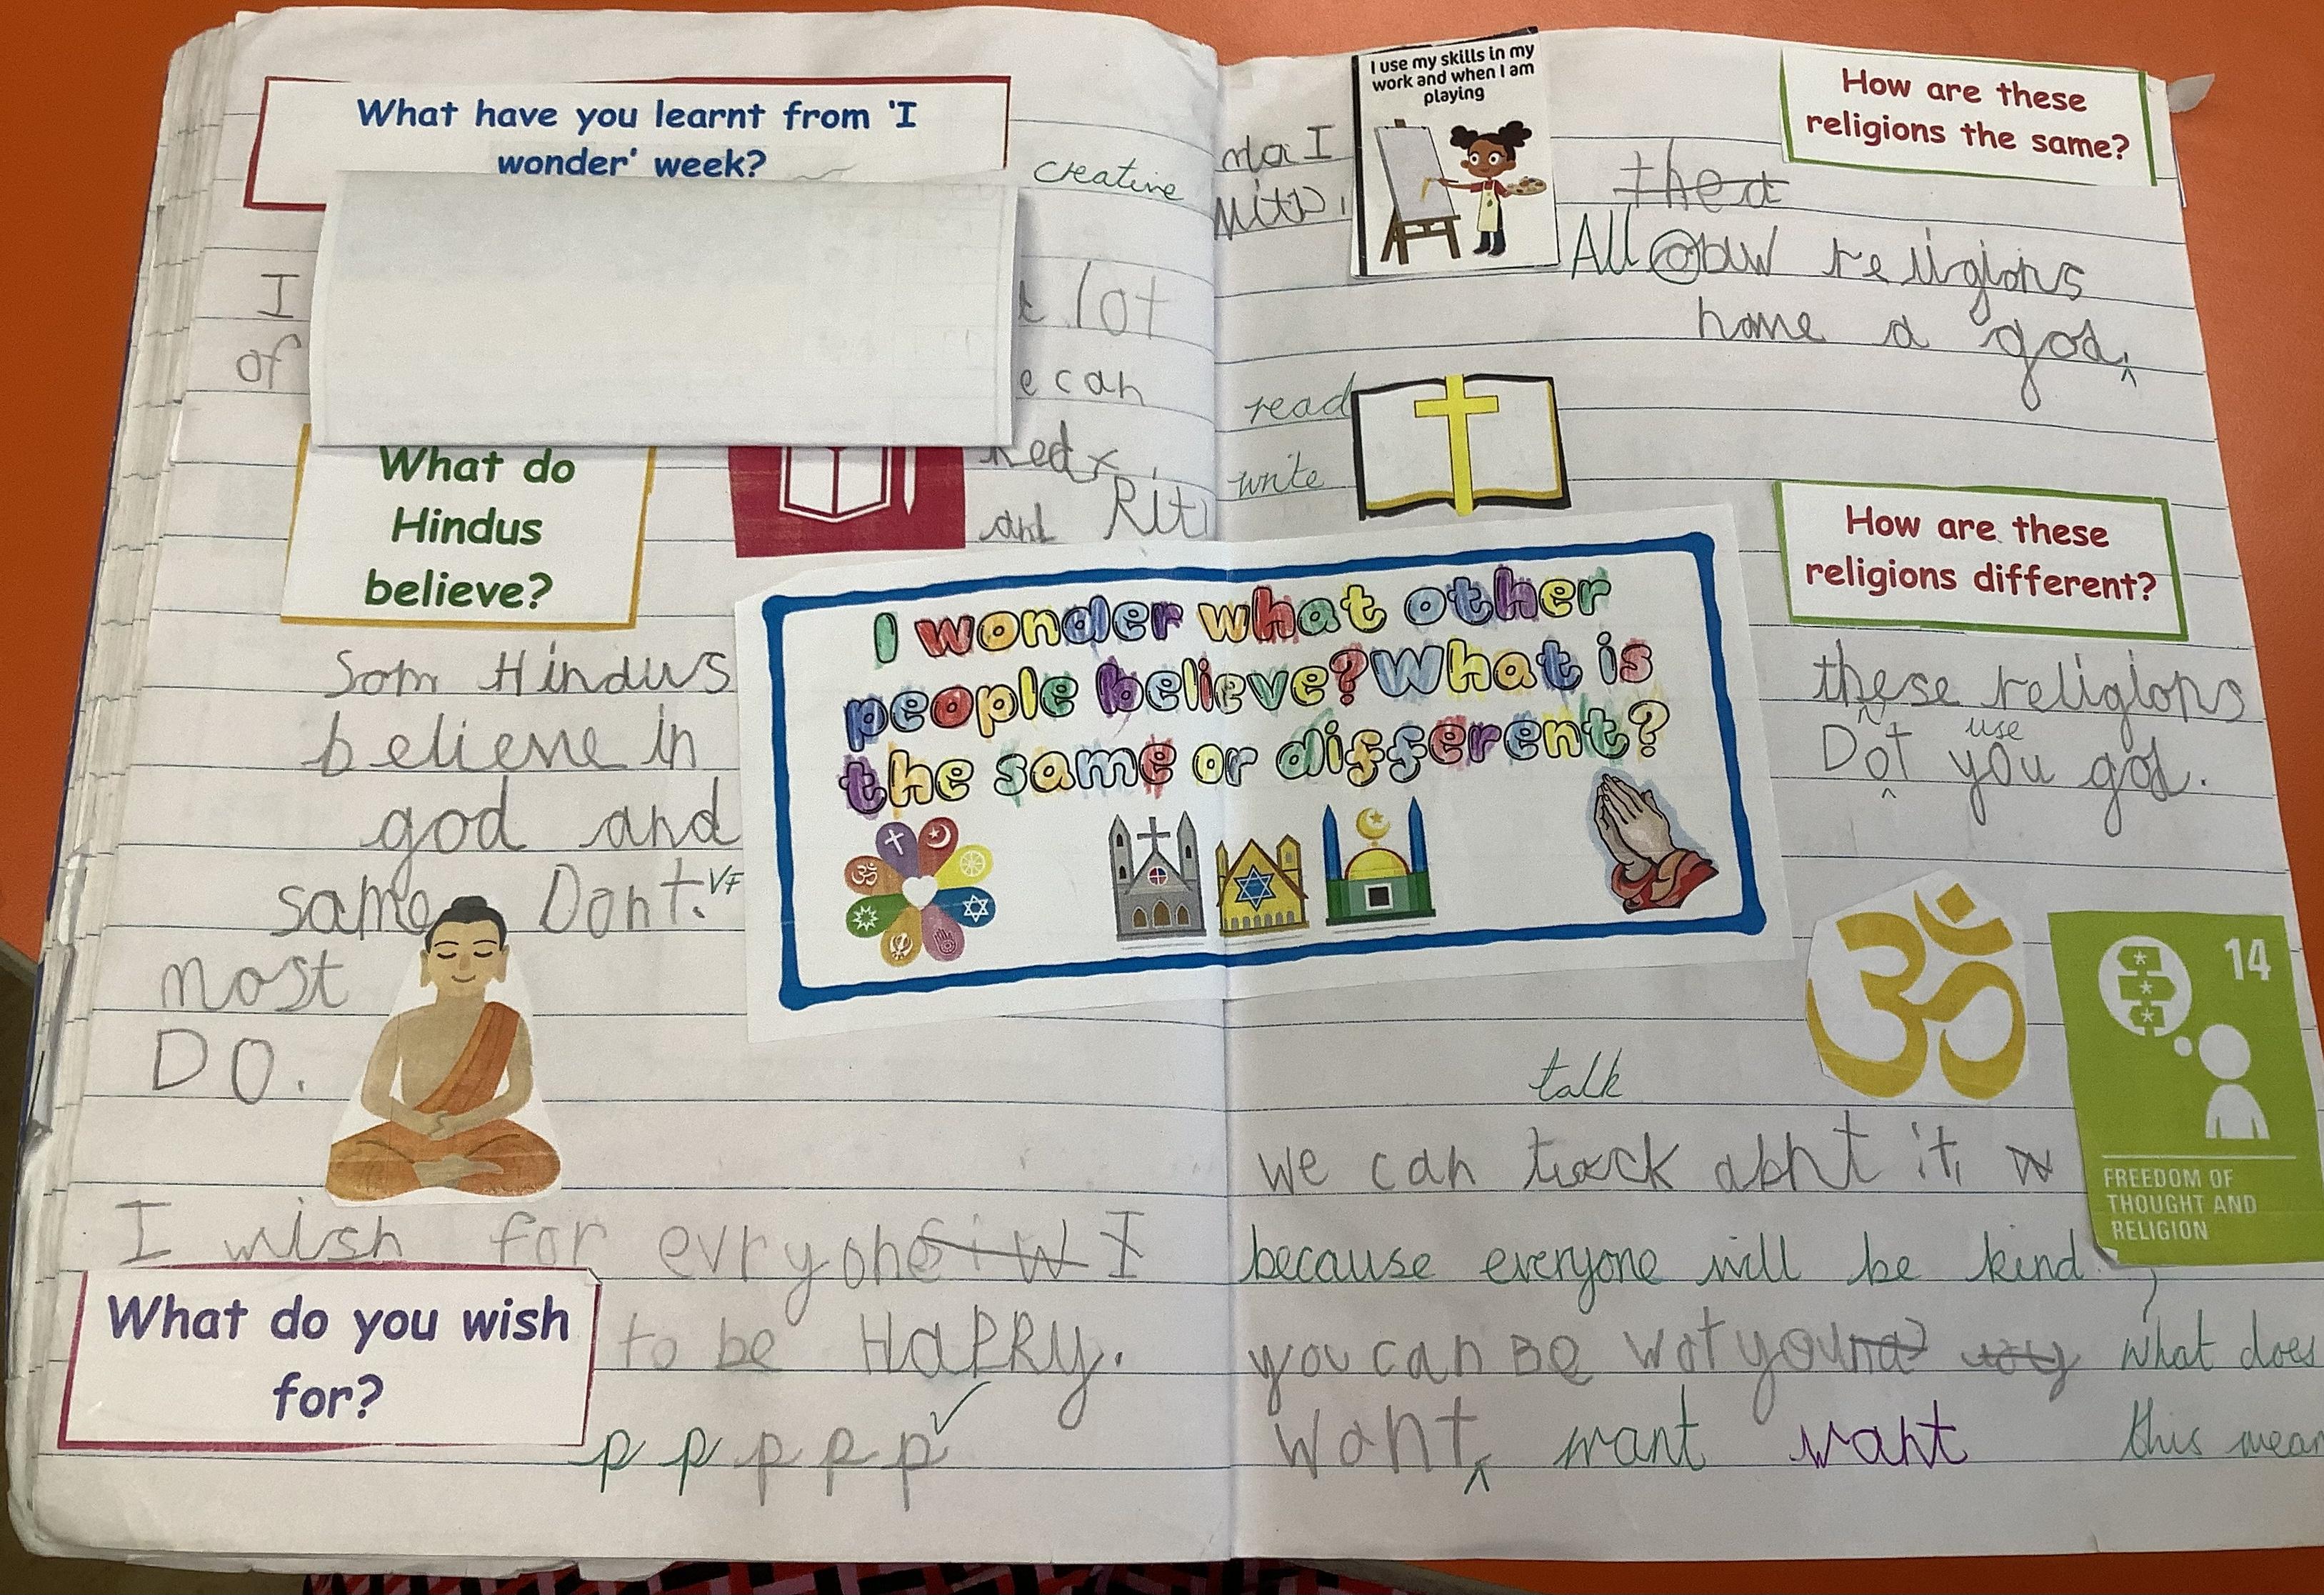 What have you learnt from 'I
wonder' week?
creative
I
lot
of
e can
What do
Hindus
believe?
and Rit
Som Hindus
believe in
god and
same Dont. VF
most
DO.
I wish for evryone I
What do you wish
for?
to be HaPPy.
p p p p p
I use my skills in my
work and when I am
playing
How are these
religions the same?
All religions
have a god.
read
write
How are these
religions different?
these religions
use
Dot you god.
I wonder what other
people believe? What is
the same or different?
14
FREEDOM OF
THOUGHT AND
RELIGION
talk
we can it,
because everyone will be kind
you can Be wot you what does
want want want this mean